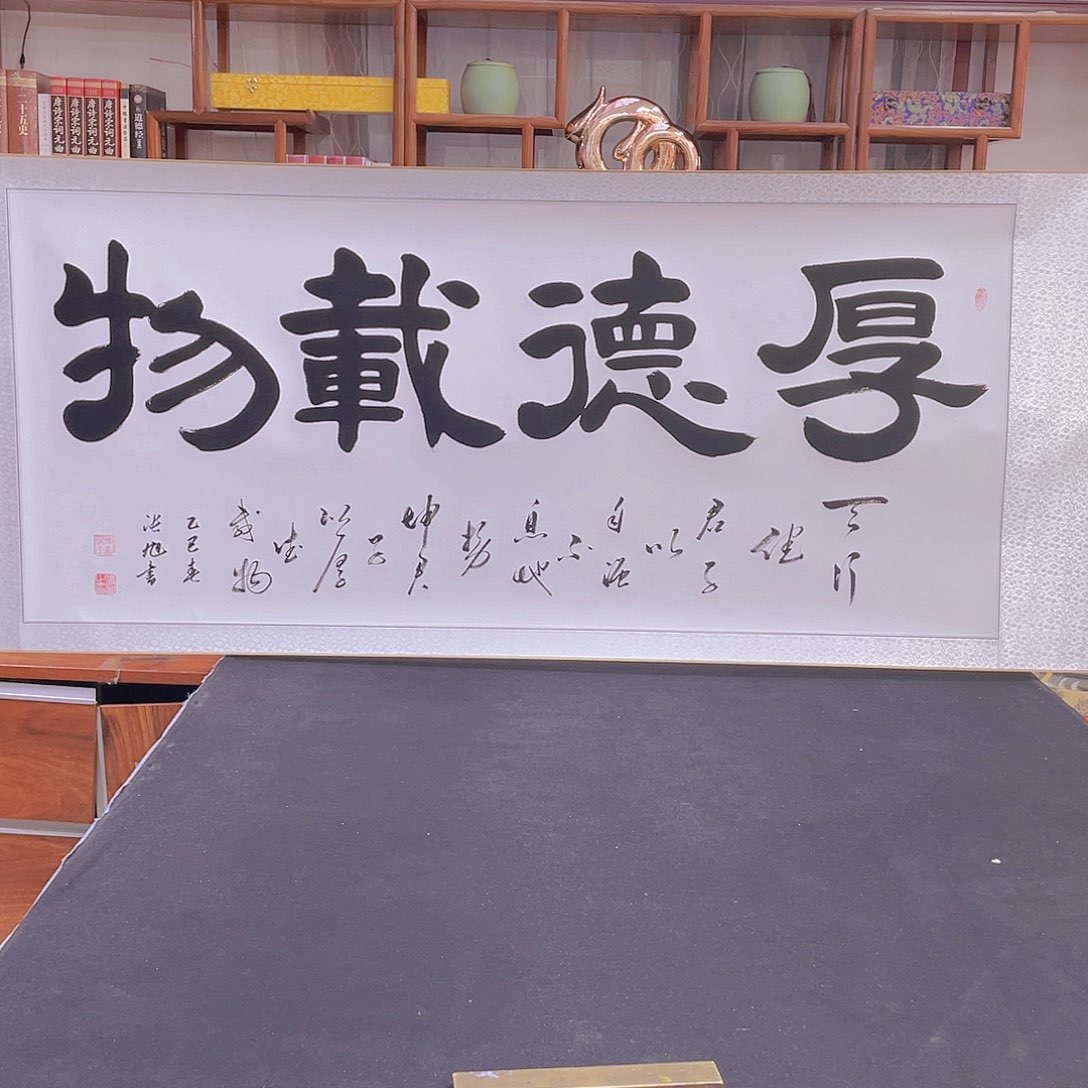 厚德載物
天行
健
君子
以
自强
不
息地
势
坤君
子
以厚
德
载物
乙巳春
旭书
二十五史
唐诗宋词元曲
唐诗宋词元曲
唐诗宋词元曲
唐诗宋词元曲
道德经